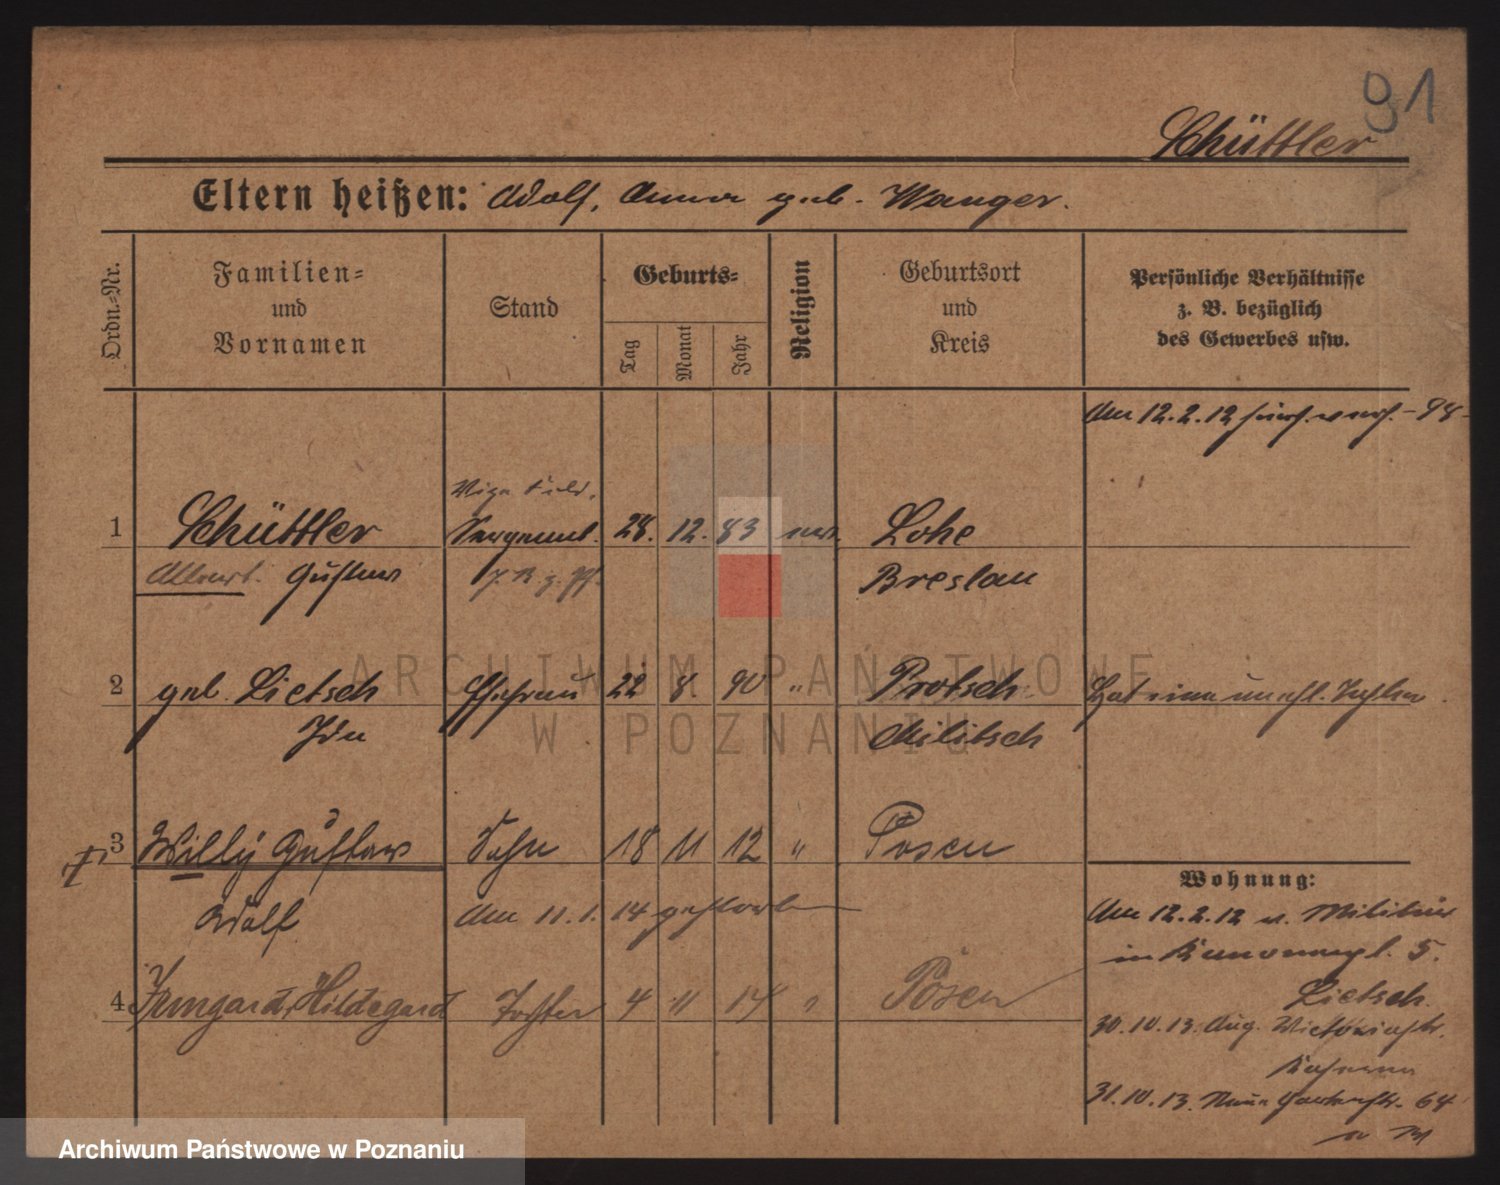 91
Schüttler
Eltern heißen: Adolf, Anna geb. Wanger.
Ordn.-Nr.
Familien-
und
Vornamen
Stand
Geburts-
Tag
Monat
Jahr
Religion
Geburtsort
und
Kreis
Persönliche Verhältnisse
z. B. bezüglich
des Gewerbes usw.
Am 12.2.12
Vize Feld.
1 Schüttler Sergeant. 28. 12. 83 Lohe
Gustav Breslau
2 geb. Lietsch Ehefrau 22 8. 90 " Protsch
Ida Militsch
3 Willy Gustav Sohn 18 11 12 " Posen
Adolf Am 11.1.14 gestorben
4 Irmgard, Hildegard Tochter 4 11 14 " Posen
Wohnung:
Am 12.2.12 v. Militär
in 5.
Lietsch.
30.10.13. Aug. Victoriastr.
31.10.13. Neue Gartenstr. 64
ARCHIWUM PAŃSTWOWE
W POZNANIU
Archiwum Państwowe w Poznaniu